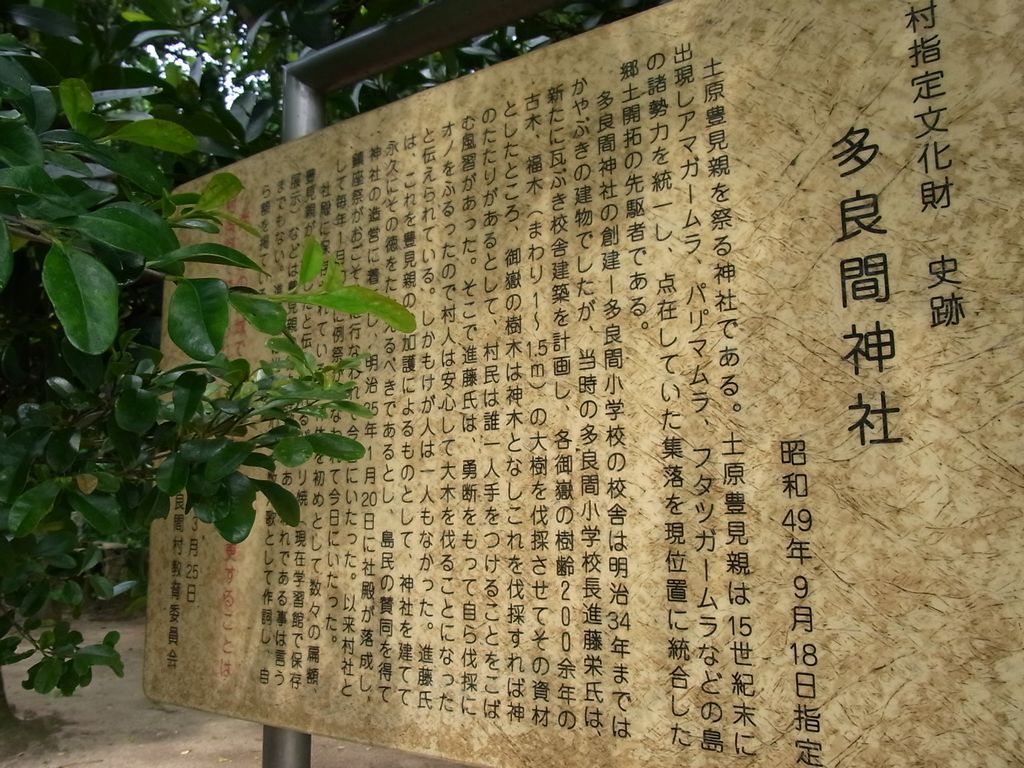 村指定文化財 史跡
多良間神社
昭和49年9月18日指定
土原豊見親を祭る神社である。土原豊見親は15世紀末に
出現しアマガームラ、パリマムラ、フタツガームラなどの島
の諸勢力を統一し、点在していた集落を現位置に統合した
郷土開拓の先駆者である。
多良間神社の創建－多良間小学校の校舎は明治34年までは
かやぶきの建物でしたが、当時の多良間小学校長進藤栄氏は、
新たに瓦ぶき校舎建築を計画し、各御嶽の樹齢200余年の
古木、福木(まわり1〜1.5m)の大樹を伐採させてその資材
としたところ、御嶽の樹木は神木となしこれを伐採すれば神
のたたりがあるとして、村民は誰一人手をつけることをこば
む風習があった。そこで進藤氏は、勇断をもって自ら伐採に
オノをふるったので村人は安心して大木を伐ることになった
と伝えられている。しかもけが人は一人もなかった。進藤氏
は、これを豊見親の加護によるものとして、神社を建てて
永久にその徳をたたえるべきであるとし、島民の賛同を得て
神社の造営に着し、明治35年1月20日に社殿が落成し、
鎮座祭がおごそ行なわれ今にいたった。以来村社と
して毎年1月に例祭がなわれて今日にいたった。
社殿にれてい体を初めとして数々の扁額
豊見親がしたと伝りり焼(現在学習館で保存
展示)などは見親あれである事は言う
までもない。進歌として作詞し、自
ら額を掲
3月25日
良間村教育委員会
更することは